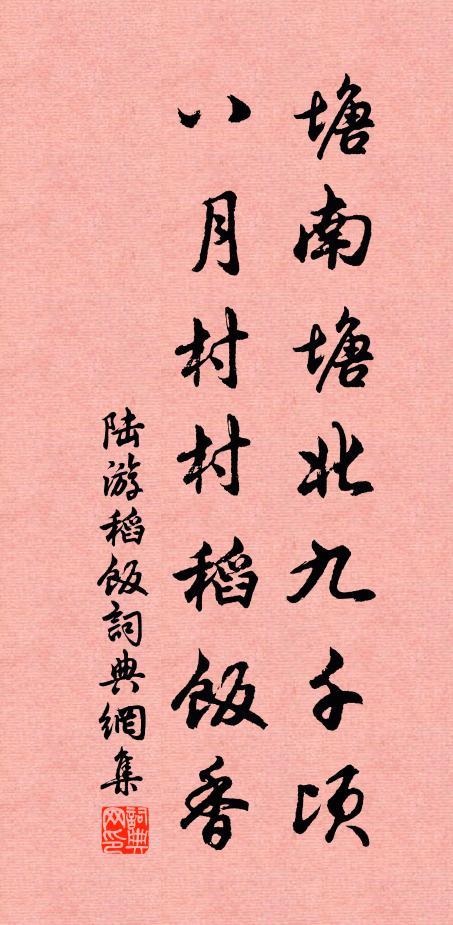 塘南塘北九千顷
八月村村稻饭香
陆游稻飯詞典網集
詞典网印